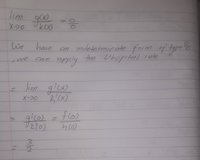 lim g(x)/h(x) = 0/0
x→0
We have an indeterminate form of type 0/0
, we can apply the L'hopital rule
= lim g'(x)/h'(x)
x→0
= g'(0)/h'(0) = f(0)/h(0)